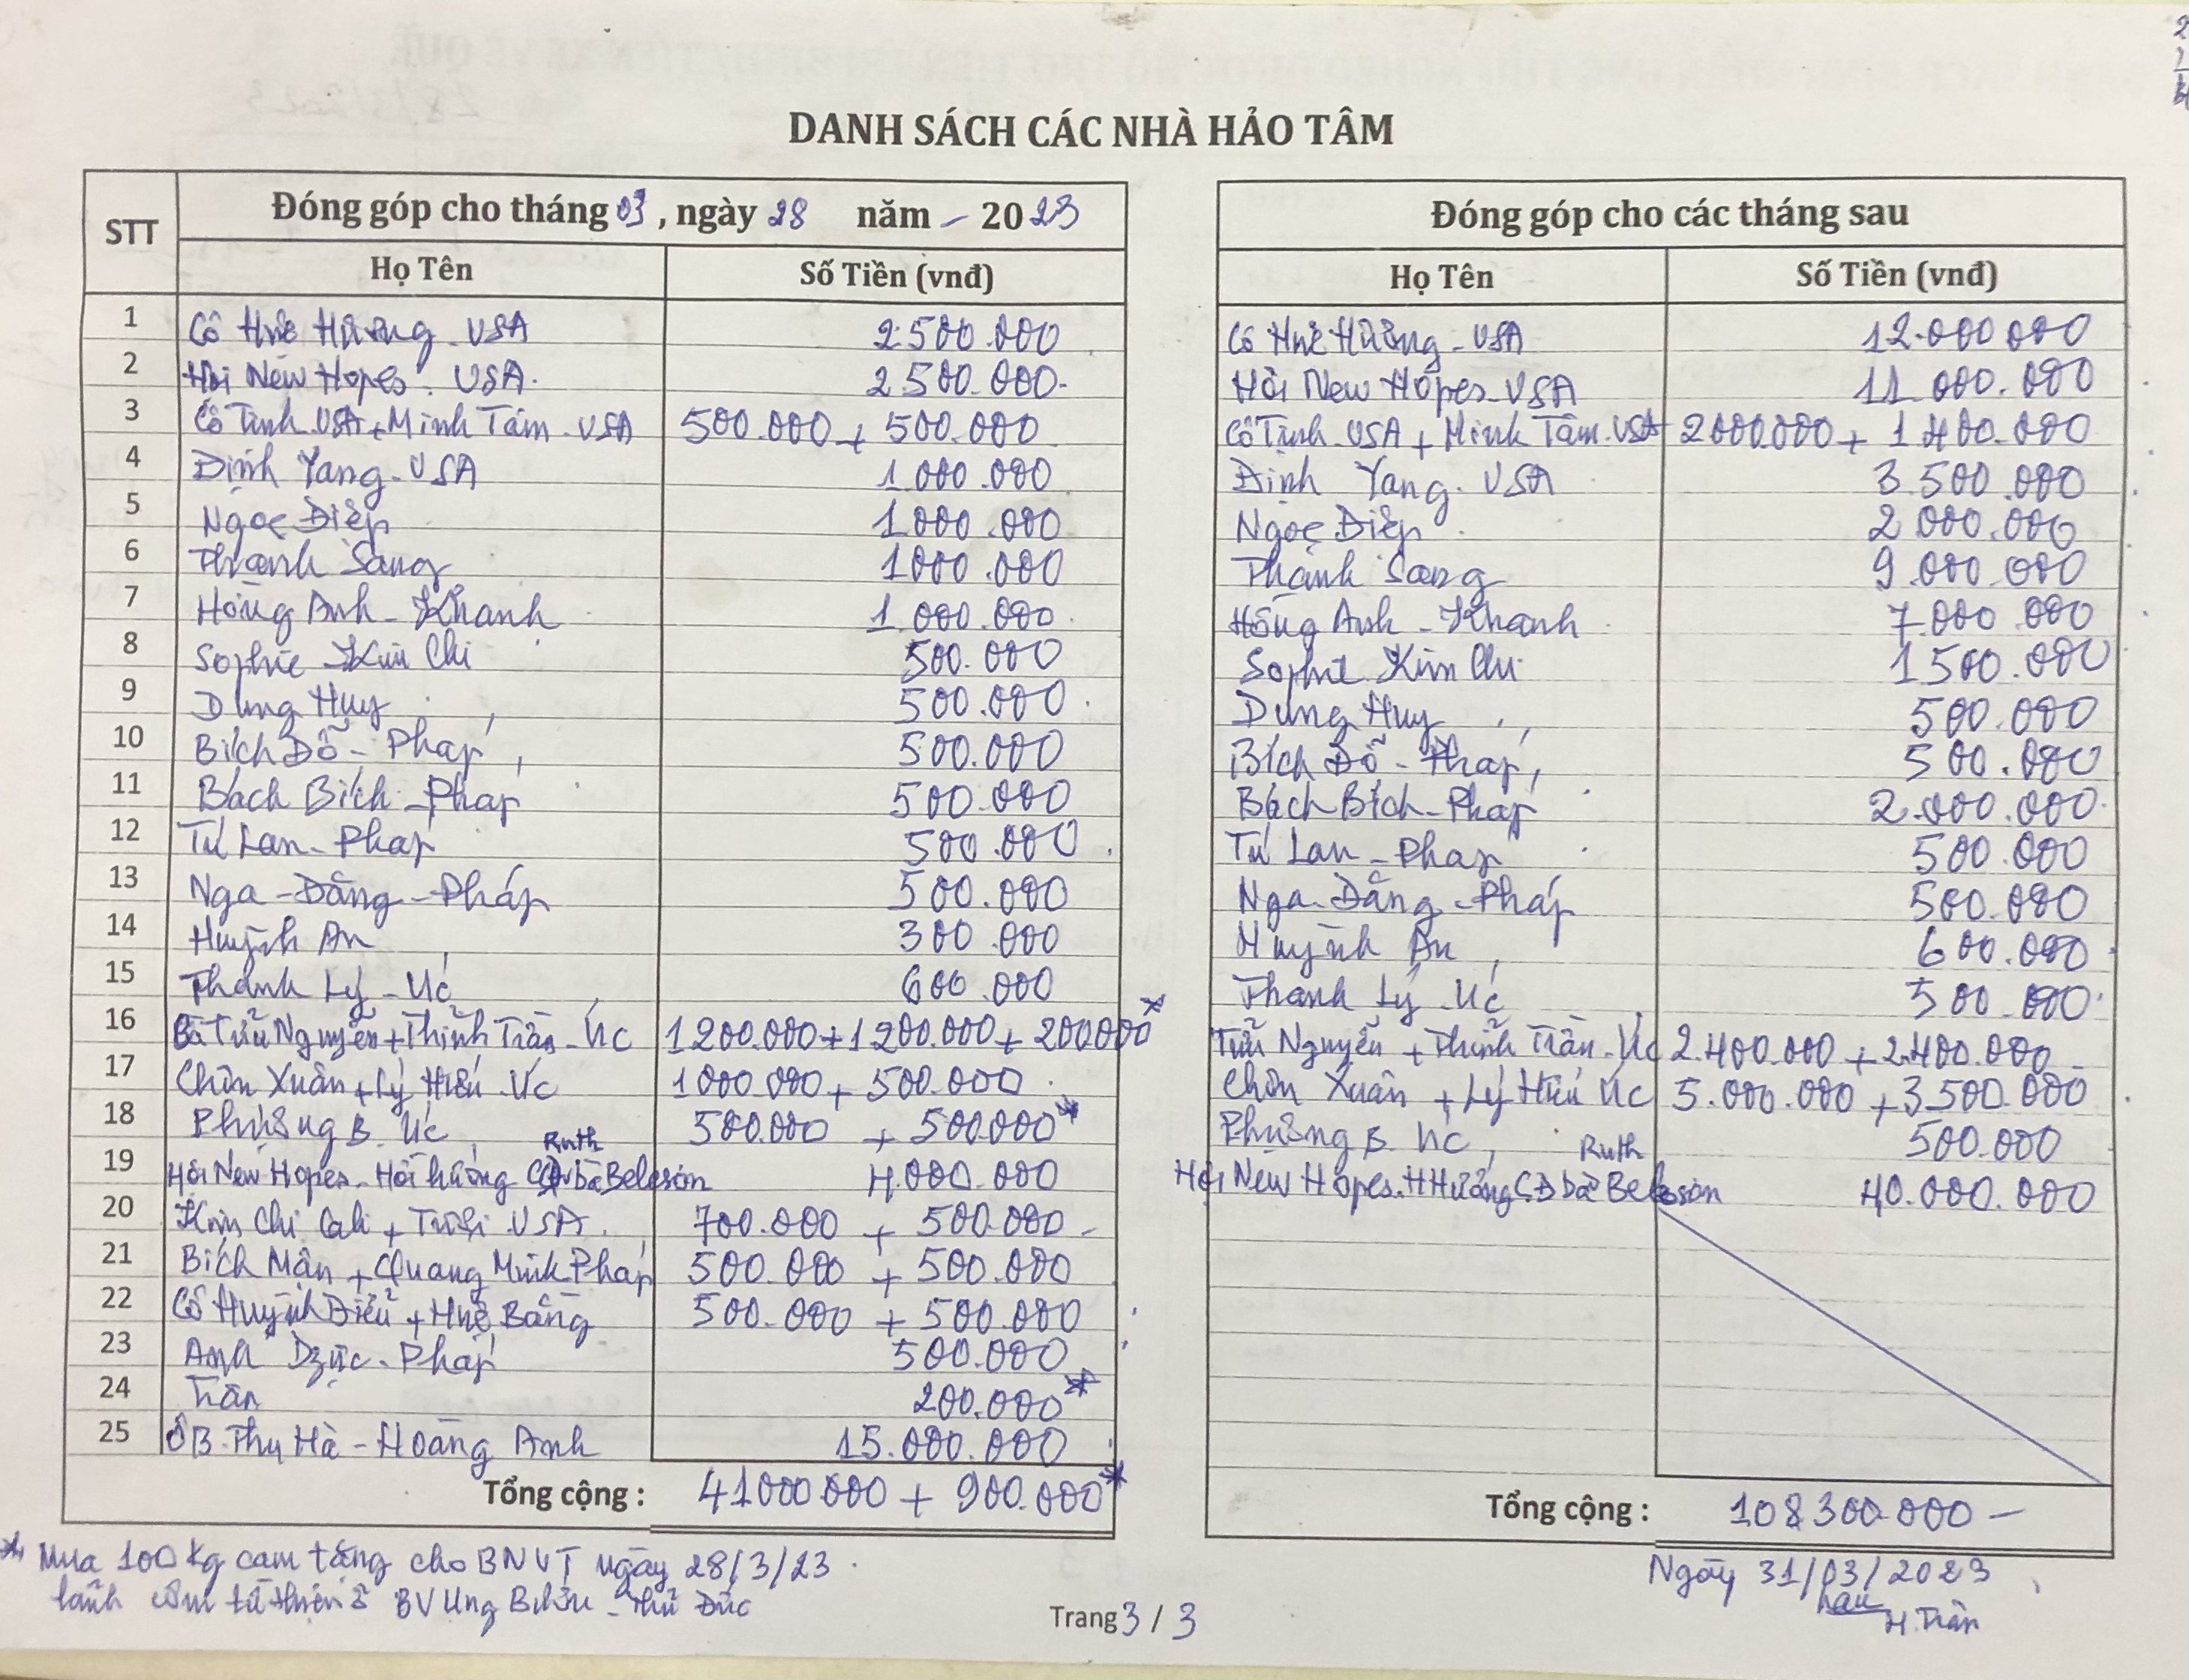 DANH SÁCH CÁC NHÀ HẢO TÂM
STT
Đóng góp cho tháng 03, ngày 28 năm - 2023
Họ Tên Số Tiền (vnđ)
1 Cô Huê Hương - USA 2.500.000
2 Hội New Hopes. USA. 2.500.000-
3 Cô Tịnh USA + Minh Tâm - USA 500.000 + 500.000
4 Định Yang - USA 1.000.000
5 Ngọc Điệp 1.000.000
6 Thanh Sang 1000.000
7 Hồng Anh - Khanh 1.000.000
8 Sophie Kim Chi 500.000
9 Dung Huy 500.000
10 Bích Đỗ - Pháp 500.000
11 Bách Bích - Pháp 500.000
12 Tú Lan - Pháp 500.000
13 Nga - Đặng - Pháp 500.000
14 Huỳnh An 300.000
15 Thanh Lý - Úc 600.000
16 Bà Tửu Nguyễn + Thịnh Trần - Úc 1200.000 + 1200.000 + 200.000*
17 Chơn Xuân + Lý Hiếu Úc 1000.000 + 500.000
18 Phương B. Úc 500.000 + 500.000*
19 Hội New Hopes - Hồi hướng CĐ bà Ruth Beleson 4.000.000
20 Kim Chi Cali + USA 700.000 + 500.000 -
21 Bích Mận + Quang Minh Pháp 500.000 + 500.000
22 Cô Huỳnh Điểu + Huê Bang 500.000 + 500.000
23 Anh Dzực - Pháp 500.000
24 Trân 200.000*
25 ÔB. Thu Hà - Hoàng Anh 15.000.000
Tổng cộng : 41000.000 + 900.000*
Đóng góp cho các tháng sau
Họ Tên Số Tiền (vnđ)
Cô Huê Hương - USA 12.000.000
Hội New Hopes - USA 11.000.000
Cô Tịnh - USA + Minh Tâm. USA 2000.000 + 1.400.000
Định Yang - USA 3.500.000
Ngọc Điệp 2.000.000
Thanh Sang 9.000.000
Hồng Anh - Khanh 7.000.000
Sophie Kim Chi 1.500.000
Dung Huy 500.000
Bích Đỗ - Pháp 500.000
Bách Bích - Pháp 2.000.000
Tú Lan - Pháp 500.000
Nga - Đặng - Pháp 500.000
Huỳnh An 600.000
Thanh Lý - Úc 500.000
Tửu Nguyễn + Thịnh Trần - Úc 2.400.000 + 2.400.000
Chơn Xuân + Lý Hiếu Úc 5.000.000 + 3.500.000
Phương B. Úc 500.000
Hội New Hopes. H Hướng CĐ bà Ruth Beleson 40.000.000
Tổng cộng : 108.300.000 -
* Mua 100 kg cam tặng cho BNUT ngày 28/3/23
lãnh cơm từ thiện ở BV Ung Bướu - Thủ Đức
Trang 3 / 3
Ngày 31/03/2023
H. Trân